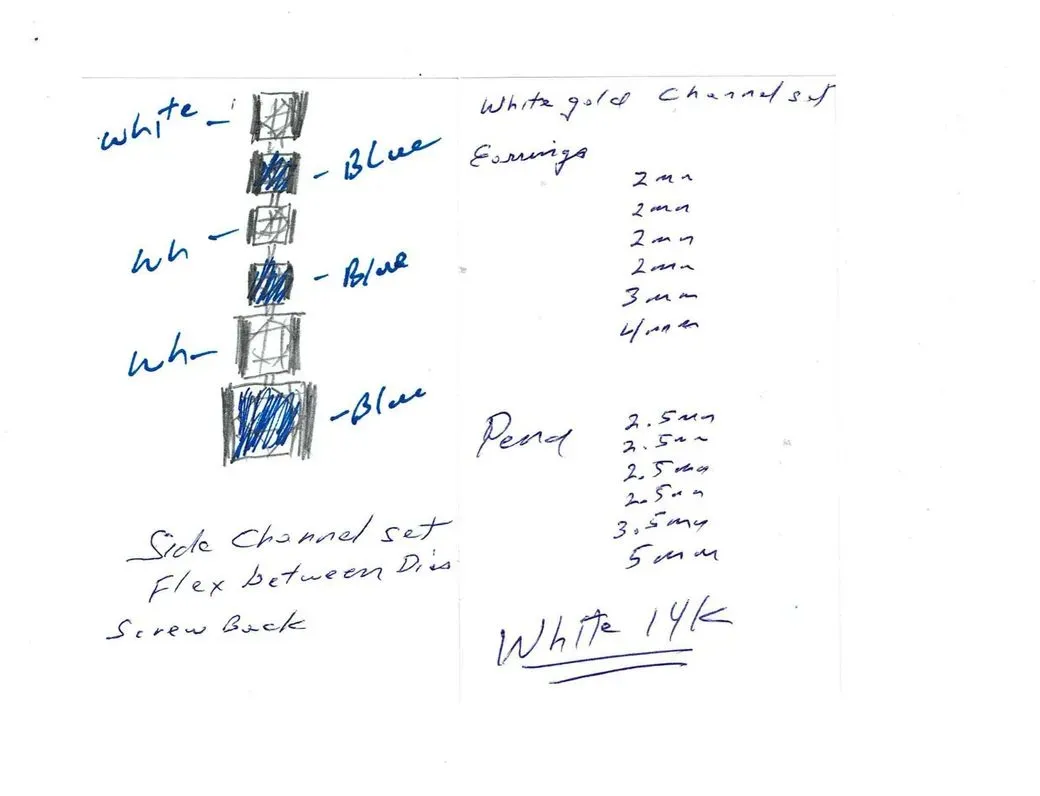 White -
- Blue
Wh -
- Blue
Wh -
- Blue
Side Channel set
Flex between Dias
Screw Back
White gold Channel set
Earrings
2 mm
2 mm
2 mm
2 mm
3 mm
4 mm
Pend
2.5 mm
2.5 mm
2.5 mm
2.5 mm
3.5 mm
5 mm
White 14K